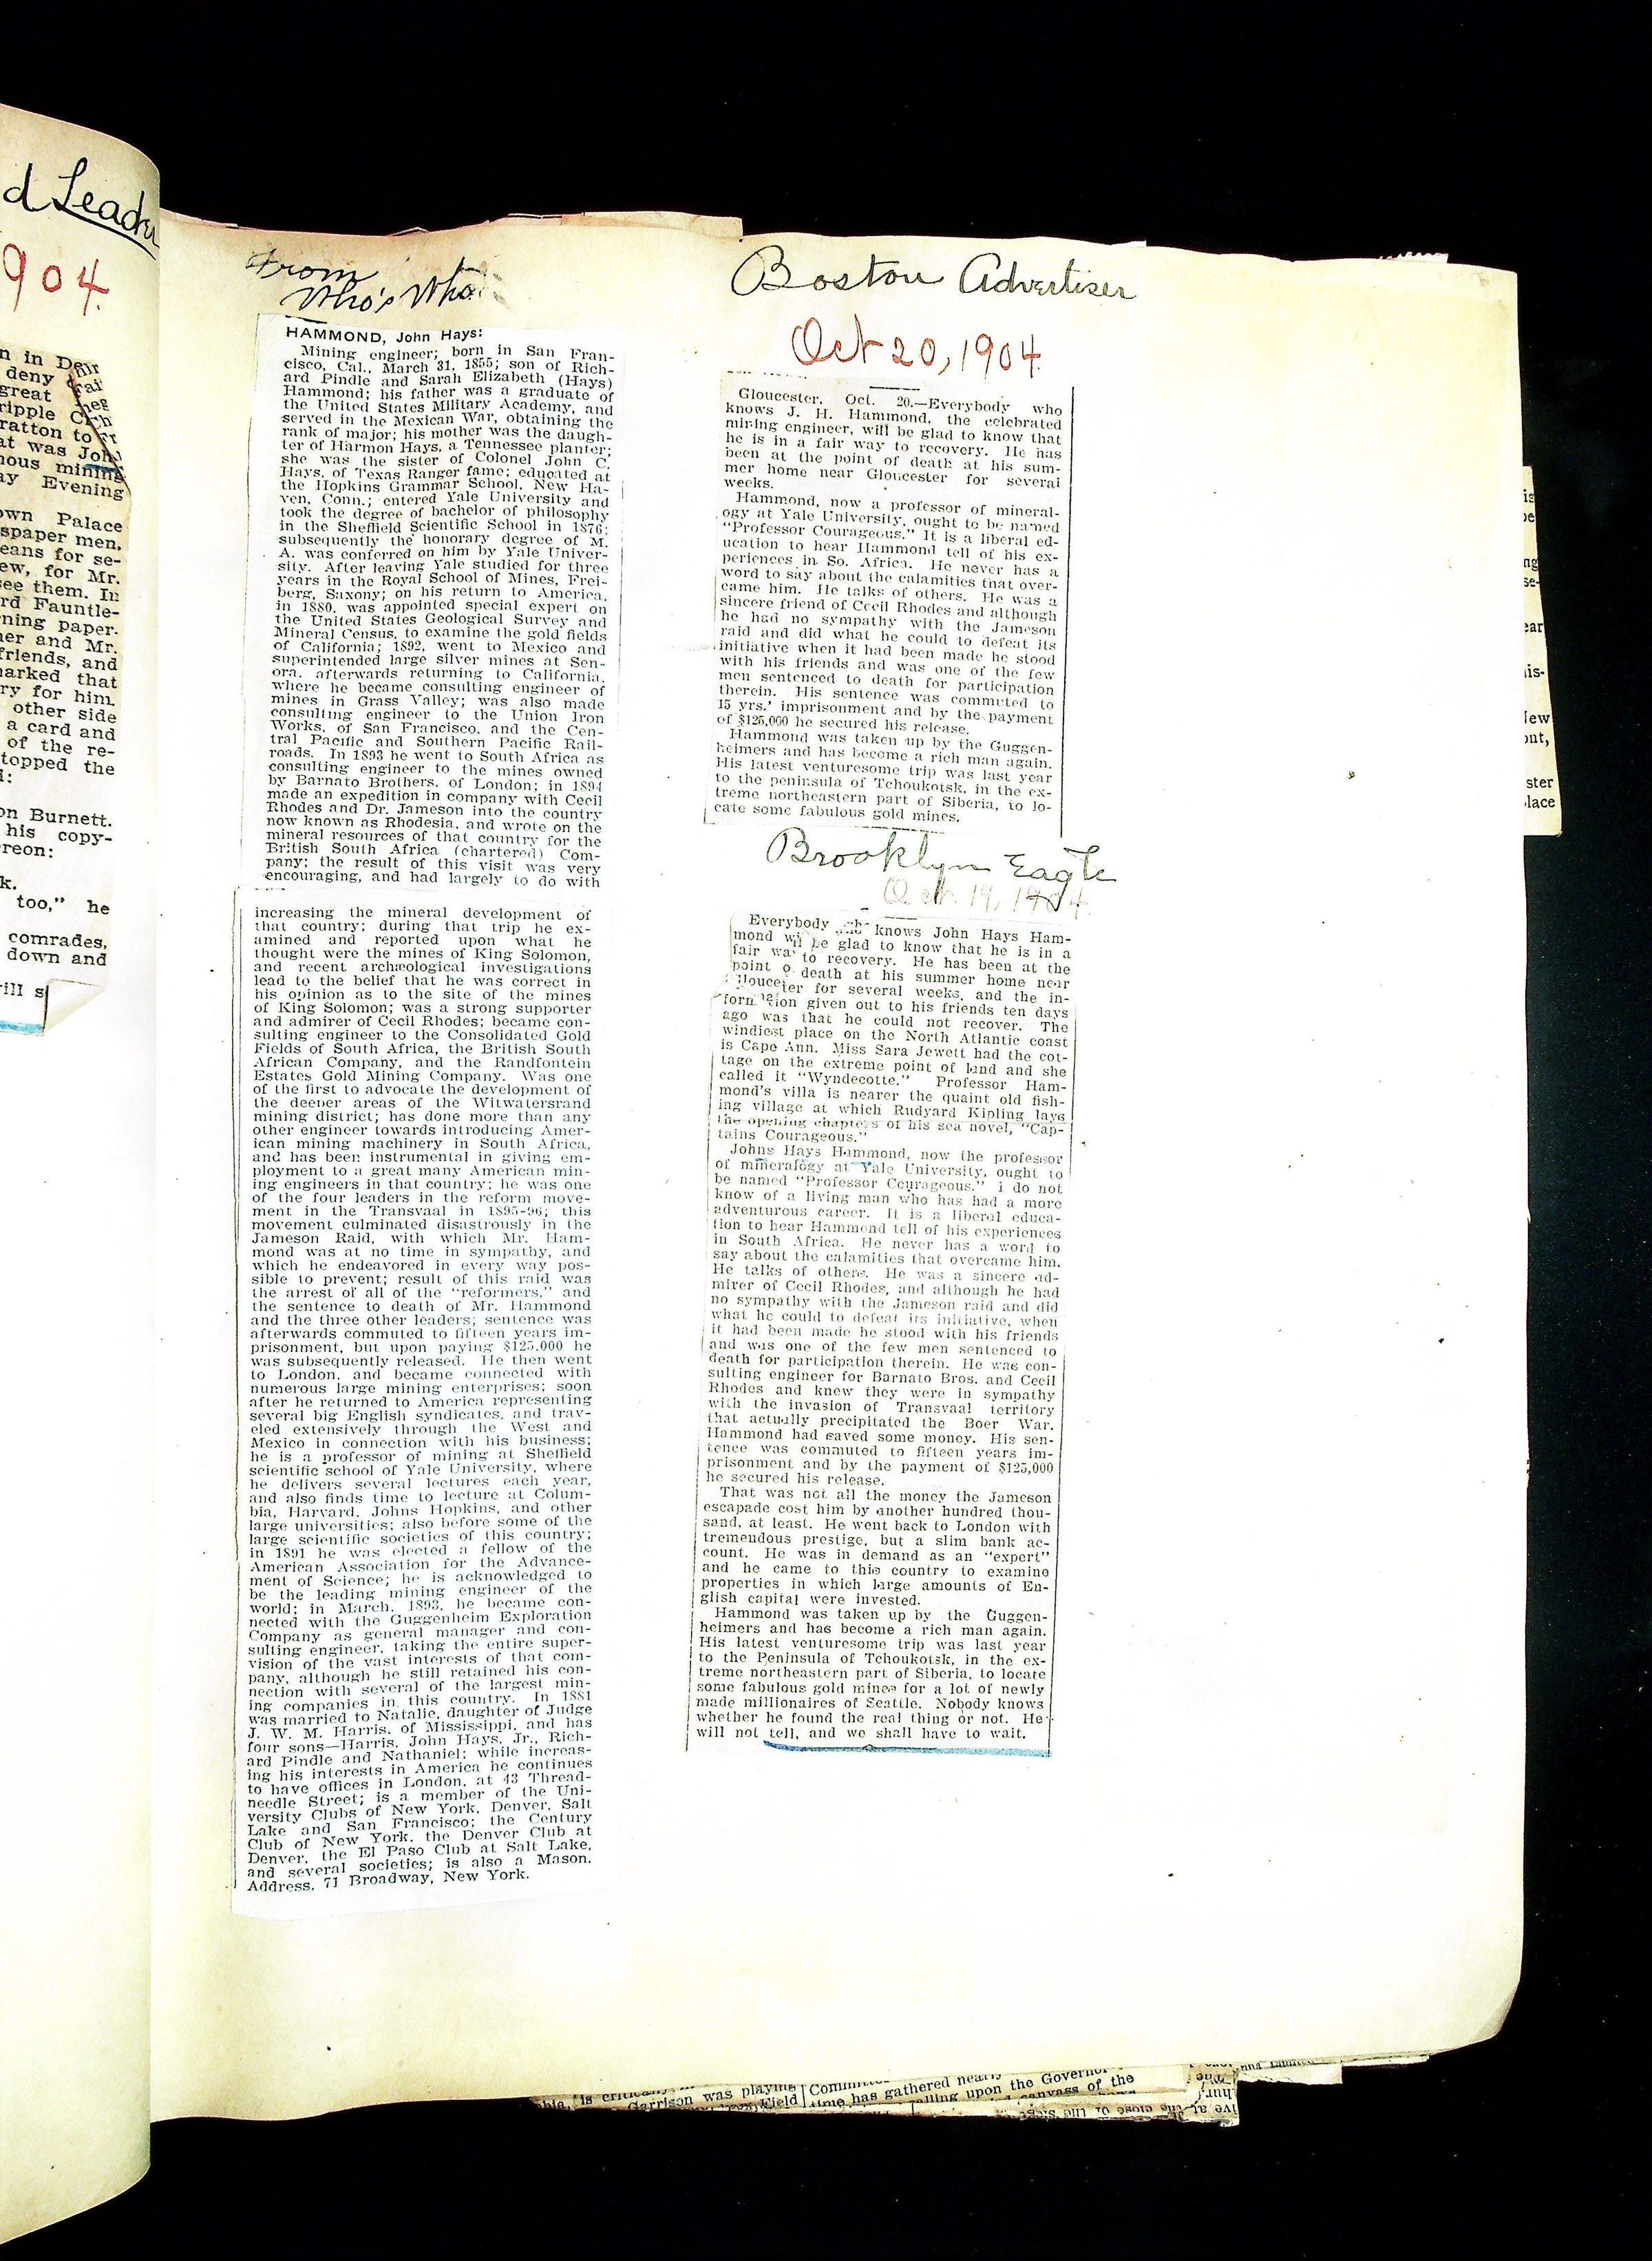 d Leader
904.
n in Den
deny
great
ripple C
ratton to
at was John
nous mining
ay Evening
own Palace
spaper men,
eans for se-
ew, for Mr.
see them. In
rd Fauntle-
ning paper.
her and Mr.
friends, and
marked that
ry for him
other side
a card and
of the re-
topped the
d:
on Burnett.
his copy-
reon:
k.
too," he
comrades,
down and
ill s
From
Who's Who
HAMMOND, John Hays:
Mining engineer; born in San Fran-
cisco, Cal., March 31, 1855; son of Rich-
ard Pindle and Sarah Elizabeth (Hays)
Hammond; his father was a graduate of
the United States Military Academy, and
served in the Mexican War, obtaining the
rank of major; his mother was the daugh-
ter of Harmon Hays, a Tennessee planter;
she was the sister of Colonel John C.
Hays, of Texas Ranger fame; educated at
the Hopkins Grammar School, New Ha-
ven, Conn.; entered Yale University and
took the degree of bachelor of philosophy
in the Sheffield Scientific School in 1876;
subsequently the honorary degree of M.
A. was conferred on him by Yale Univer-
sity. After leaving Yale studied for three
years in the Royal School of Mines, Frei-
berg, Saxony; on his return to America,
in 1880, was appointed special expert on
the United States Geological Survey and
Mineral Census, to examine the gold fields
of California; 1892, went to Mexico and
superintended large silver mines at Sen-
ora, afterwards returning to California,
where he became consulting engineer of
mines in Grass Valley; was also made
consulting engineer to the Union Iron
Works, of San Francisco, and the Cen-
tral Pacific and Southern Pacific Rail-
roads. In 1893 he went to South Africa as
consulting engineer to the mines owned
by Barnato Brothers, of London; in 1894
made an expedition in company with Cecil
Rhodes and Dr. Jameson into the country
now known as Rhodesia, and wrote on the
mineral resources of that country for the
British South Africa (chartered) Com-
pany; the result of this visit was very
encouraging, and had largely to do with
increasing the mineral development of
that country; during that trip he ex-
amined and reported upon what he
thought were the mines of King Solomon,
and recent archæological investigations
lead to the belief that he was correct in
his opinion as to the site of the mines
of King Solomon; was a strong supporter
and admirer of Cecil Rhodes; became con-
sulting engineer to the Consolidated Gold
Fields of South Africa, the British South
African Company, and the Randfontein
Estates Gold Mining Company. Was one
of the first to advocate the development of
the deeper areas of the Witwatersrand
mining district; has done more than any
other engineer towards introducing Amer-
ican mining machinery in South Africa,
and has been instrumental in giving em-
ployment to a great many American min-
ing engineers in that country; he was one
of the four leaders in the reform move-
ment in the Transvaal in 1895-96; this
movement culminated disastrously in the
Jameson Raid, with which Mr. Ham-
mond was at no time in sympathy, and
which he endeavored in every way pos-
sible to prevent; result of this raid was
the arrest of all of the "reformers," and
the sentence to death of Mr. Hammond
and the three other leaders; sentence was
afterwards commuted to fifteen years im-
prisonment, but upon paying $125.000 he
was subsequently released. He then went
to London, and became connected with
numerous large mining enterprises; soon
after he returned to America representing
several big English syndicates, and trav-
eled extensively through the West and
Mexico in connection with his business;
he is a professor of mining at Sheffield
scientific school of Yale University, where
he delivers several lectures each year,
and also finds time to lecture at Colum-
bia, Harvard, Johns Hopkins, and other
large universities; also before some of the
large scientific societies of this country;
in 1891 he was elected a fellow of the
American Association for the Advance-
ment of Science; he is acknowledged to
be the leading mining engineer of the
world; in March, 1893, he became con-
nected with the Guggenheim Exploration
Company as general manager and con-
sulting engineer, taking the entire super-
vision of the vast interests of that com-
pany, although he still retained his con-
nection with several of the largest min-
ing companies in this country. In 1881
was married to Natalie, daughter of Judge
J. W. M. Harris, of Mississippi, and has
four sons—Harris, John Hays, Jr., Rich-
ard Pindle and Nathaniel; while increas-
ing his interests in America he continues
to have offices in London, at 43 Thread-
needle Street; is a member of the Uni-
versity Clubs of New York, Denver, Salt
Lake and San Francisco; the Century
Club of New York, the Denver Club at
Denver, the El Paso Club at Salt Lake,
and several societies; is also a Mason.
Address, 71 Broadway, New York.
Boston Advertiser
Oct 20, 1904.
Gloucester, Oct. 20.—Everybody who
knows J. H. Hammond, the celebrated
mining engineer, will be glad to know that
he is in a fair way to recovery. He has
been at the point of death at his sum-
mer home near Gloucester for several
weeks.
Hammond, now a professor of mineral-
ogy at Yale University, ought to be named
"Professor Courageous." It is a liberal ed-
ucation to hear Hammond tell of his ex-
periences in So. Africa. He never has a
word to say about the calamities that over-
came him. He talks of others. He was a
sincere friend of Cecil Rhodes and although
he had no sympathy with the Jameson
raid and did what he could to defeat its
initiative when it had been made he stood
with his friends and was one of the few
men sentenced to death for participation
therein. His sentence was commuted to
15 yrs.' imprisonment and by the payment
of $125,000 he secured his release.
Hammond was taken up by the Guggen-
heimers and has become a rich man again.
His latest venturesome trip was last year
to the peninsula of Tchoukotsk, in the ex-
treme northeastern part of Siberia, to lo-
cate some fabulous gold mines.
Brooklyn Eagle
Oct. 19, 1904.
Everybody who knows John Hays Ham-
mond will be glad to know that he is in a
fair way to recovery. He has been at the
point o death at his summer home near
Gloucester for several weeks, and the in-
formation given out to his friends ten days
ago was that he could not recover. The
windiest place on the North Atlantic coast
is Cape Ann. Miss Sara Jewett had the cot-
tage on the extreme point of land and she
called it "Wyndecotte." Professor Ham-
mond's villa is nearer the quaint old fish-
ing village at which Rudyard Kipling lays
the opening chapters of his sea novel, "Cap-
tains Courageous."
Johns Hays Hammond, now the professor
of mineralogy at Yale University, ought to
be named "Professor Courageous." I do not
know of a living man who has had a more
adventurous career. It is a liberal educa-
tion to hear Hammond tell of his experiences
in South Africa. He never has a word to
say about the calamities that overcame him.
He talks of others. He was a sincere ad-
mirer of Cecil Rhodes, and although he had
no sympathy with the Jameson raid and did
what he could to defeat its initiative, when
it had been made he stood with his friends
and was one of the few men sentenced to
death for participation therein. He was con-
sulting engineer for Barnato Bros. and Cecil
Rhodes and knew they were in sympathy
with the invasion of Transvaal territory
that actually precipitated the Boer War.
Hammond had saved some money. His sen-
tence was commuted to fifteen years im-
prisonment and by the payment of $125,000
he secured his release.
That was not all the money the Jameson
escapade cost him by another hundred thou-
sand, at least. He went back to London with
tremendous prestige, but a slim bank ac-
count. He was in demand as an "expert"
and he came to this country to examine
properties in which large amounts of En-
glish capital were invested.
Hammond was taken up by the Guggen-
heimers and has become a rich man again.
His latest venturesome trip was last year
to the Peninsula of Tchoukotsk, in the ex-
treme northeastern part of Siberia, to locate
some fabulous gold mines for a lot of newly
made millionaires of Seattle. Nobody knows
whether he found the real thing or not. He
will not tell, and we shall have to wait.
is
be
ng
se-
ear
is-
New
out,
ster
lace
Garrison was playing
Field
time has gathered nearly
alling upon the Governor
canvass of the
ive at the close of the